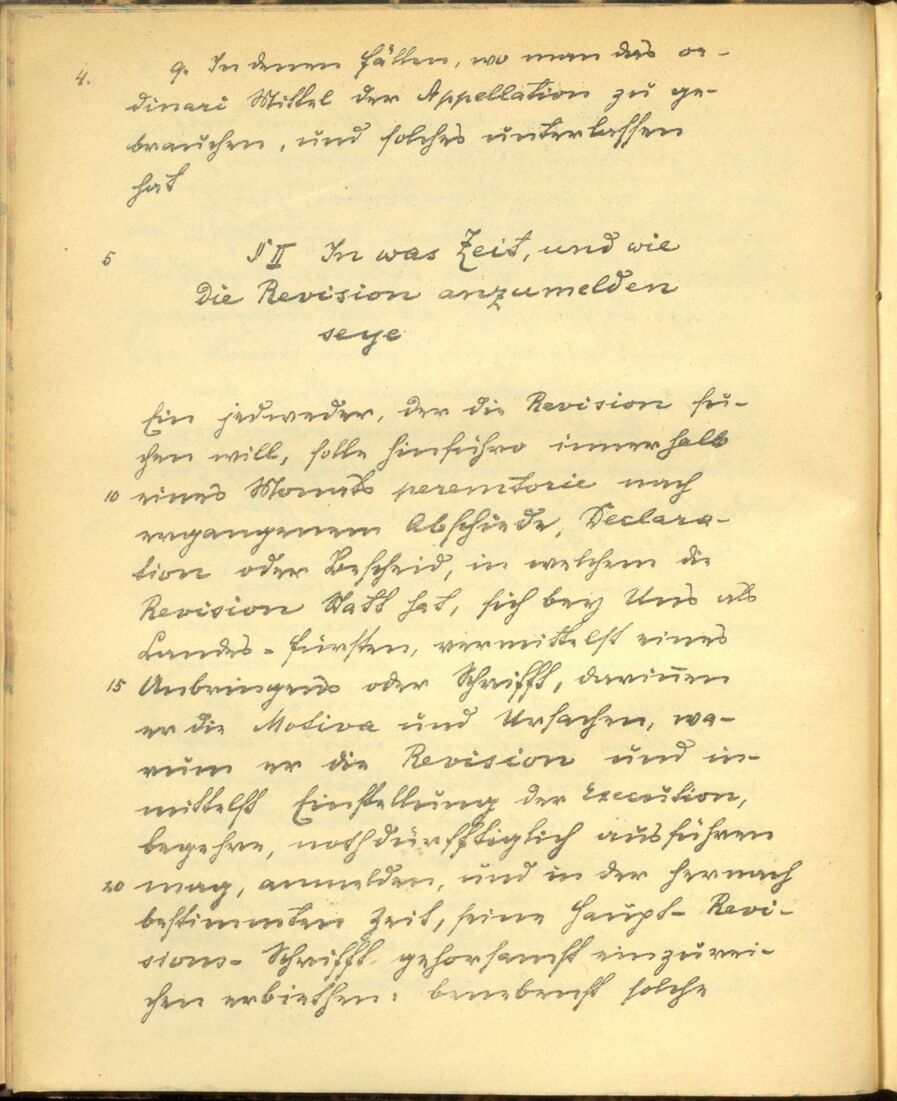 4. 9. In denen Fällen, wo man das or-
dinari Mittel der Appellation zu ge-
brauchen, und solches unterlassen
hat
5 § II In was Zeit, und wie
die Revision anzumelden
seye
Ein jedweder, der die Revision su-
chen will, solle hinführo innerhalb
10 eines Monats peremtorie nach
ergangenem Abschiede, Declara-
tion oder Bescheid, in welchem die
Revision Statt hat, sich bey Uns als
Landes-Fürsten, vermittelst eines
15 Anbringens oder Schrifft, darinnen
er die Motiva und Ursachen, wa-
rum er die Revision und in-
mittelst Einstellung der Execution,
begehre, nothdürfftiglich ausführen
20 mag, anmelden, und in der hernach
bestimmten Zeit, seine Haupt-Revi-
sions-Schrifft gehorsamst einzurei-
chen erbiethen: benebenst solche